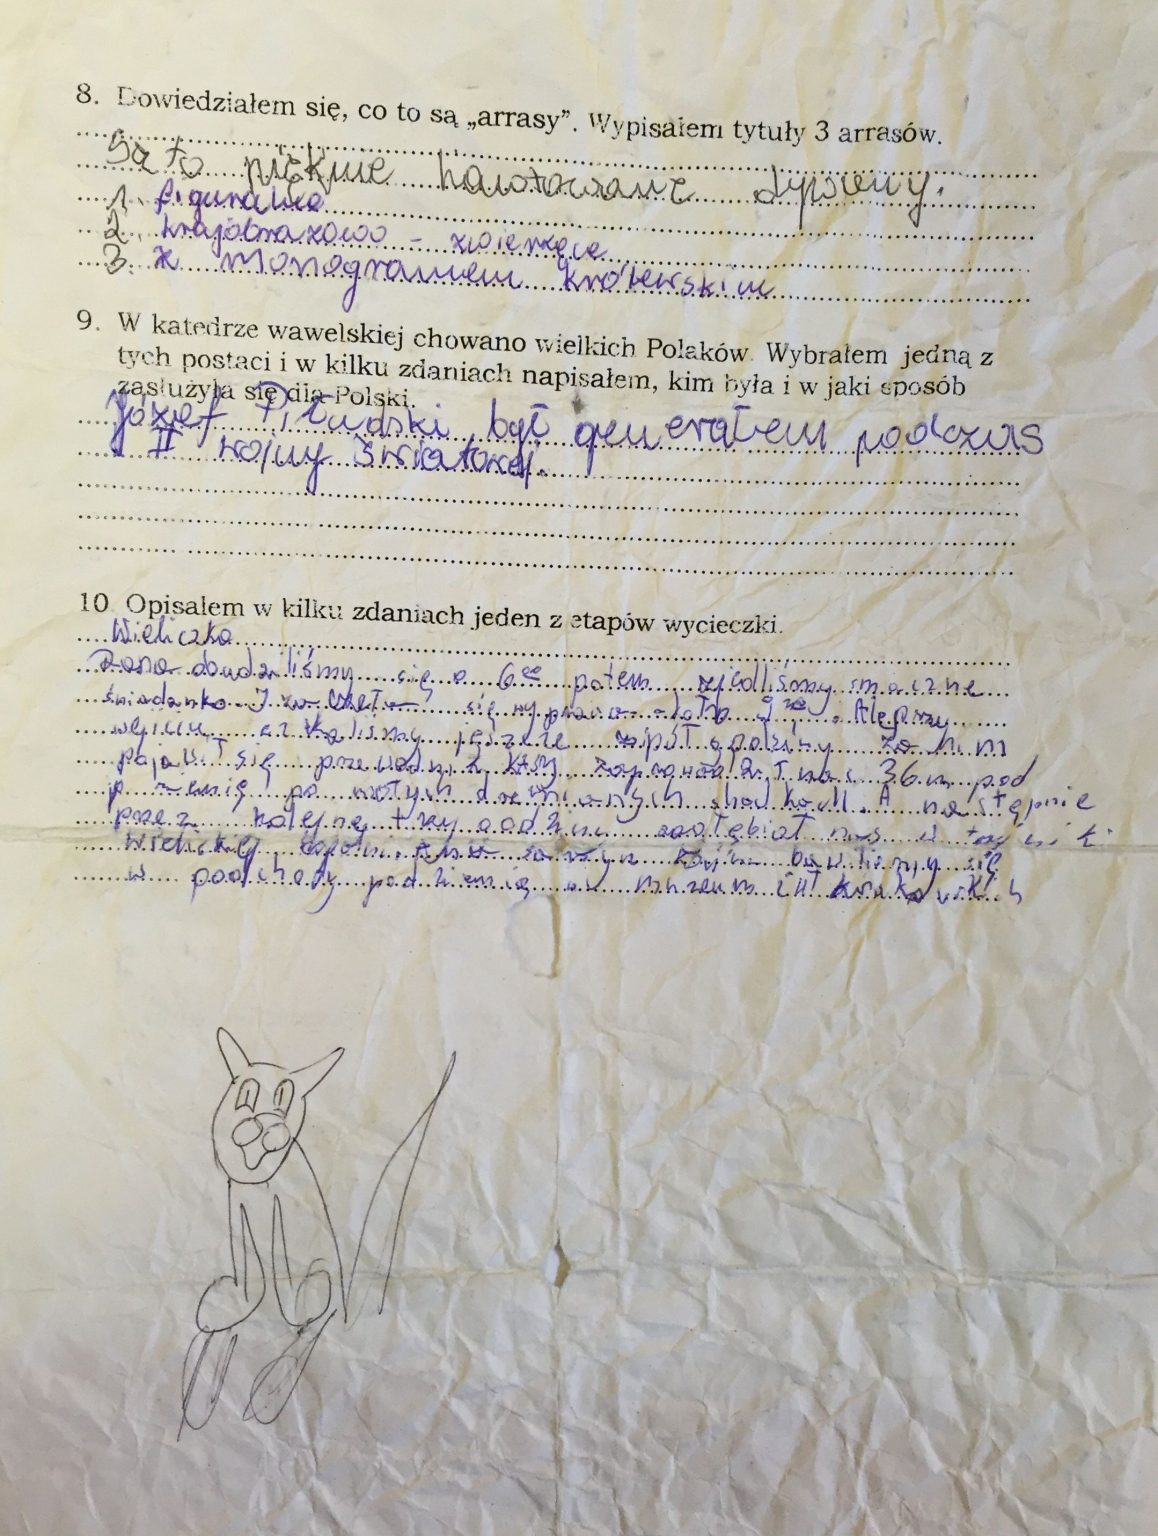 8. Dowiedziałem się, co to są „arrasy”. Wypisałem tytuły 3 arrasów.
Są to pięknie hawtowane dywany.
1. figuralne
2. krajobrazowo - zwierzęce
3. z monogramem królewskim
9. W katedrze wawelskiej chowano wielkich Polaków. Wybrałem jedną z
tych postaci i w kilku zdaniach napisałem, kim była i w jaki sposób
zasłużyła się dla Polski.
Józef Piłsudski był generałem podczas
II wojny światowej.
10. Opisałem w kilku zdaniach jeden z etapów wycieczki.
Wieliczka
się o 6⁰⁰ potem zjedliśmy smaczne
śniadanko się Ale przy
wejściu czekaliśmy jeszcze pół godziny za nim
pojawił się przewodnik, który nas 36 m pod
po drewnianych schodkach. A następnie
przez kolejne trzy godziny zagłębiał nas w
Wielickiej bawiliśmy się
w podchody pod ziemią w muzeum